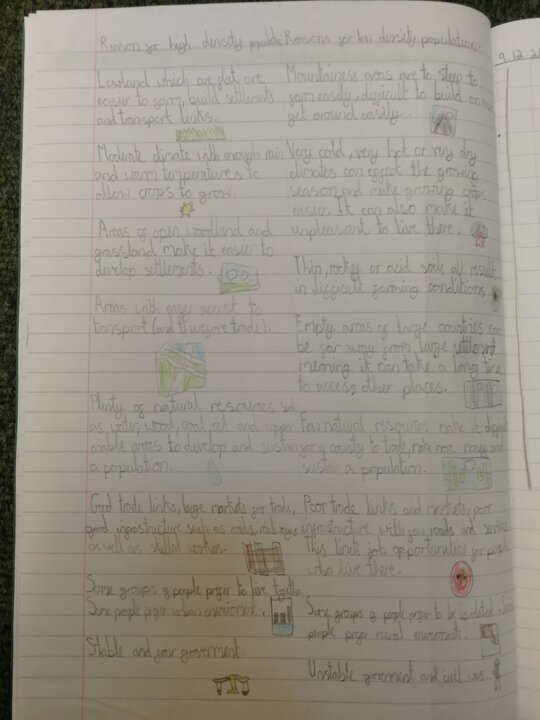 Reason for high density populate
Lowland which are flat are
easier to farm, build settlements
and transport links.
Moderate climate with enough rain
and warm temperatures to
allow crops to grow.
Areas of open woodland and
grassland make it easier to
develop settlements.
Areas with easy access to
transport (and therefore trade).
Plenty of natural resources
as water, wood, coal, oil and copper
enable areas to develop and sustain
a population.
Good trade links, large markets for trade,
good infrastructure such as roads, railways
as well as skilled workers.
Some groups of people prefer to live together
Some people prefer urban environment.
Stable and fair goverment.
Reasons for low density population
Mountainess areas are to steep to
farm easily, difficult to build on and
get around easily.
Very cold, very hot or very dry
climates can effect the growing
season and make growing crops
easier. It can also make it
unpleasant to live there.
Thin, rocky or acid soils all result
in difficult farming conditions.
Empty areas of large countries can
be far away from large settlement
meaning it can take a long time
to access other places.
Few natural resources make it
for a country to trade, make more money and
sustain a population.
Poor trade links and markets, poor
infrastructure with few roads and services
This limits job opportunities for people
who live there.
Some groups of people prefer to be isolated.
people prefer rural enviroments.
Unstable goverment and civil wars.
9.12.2